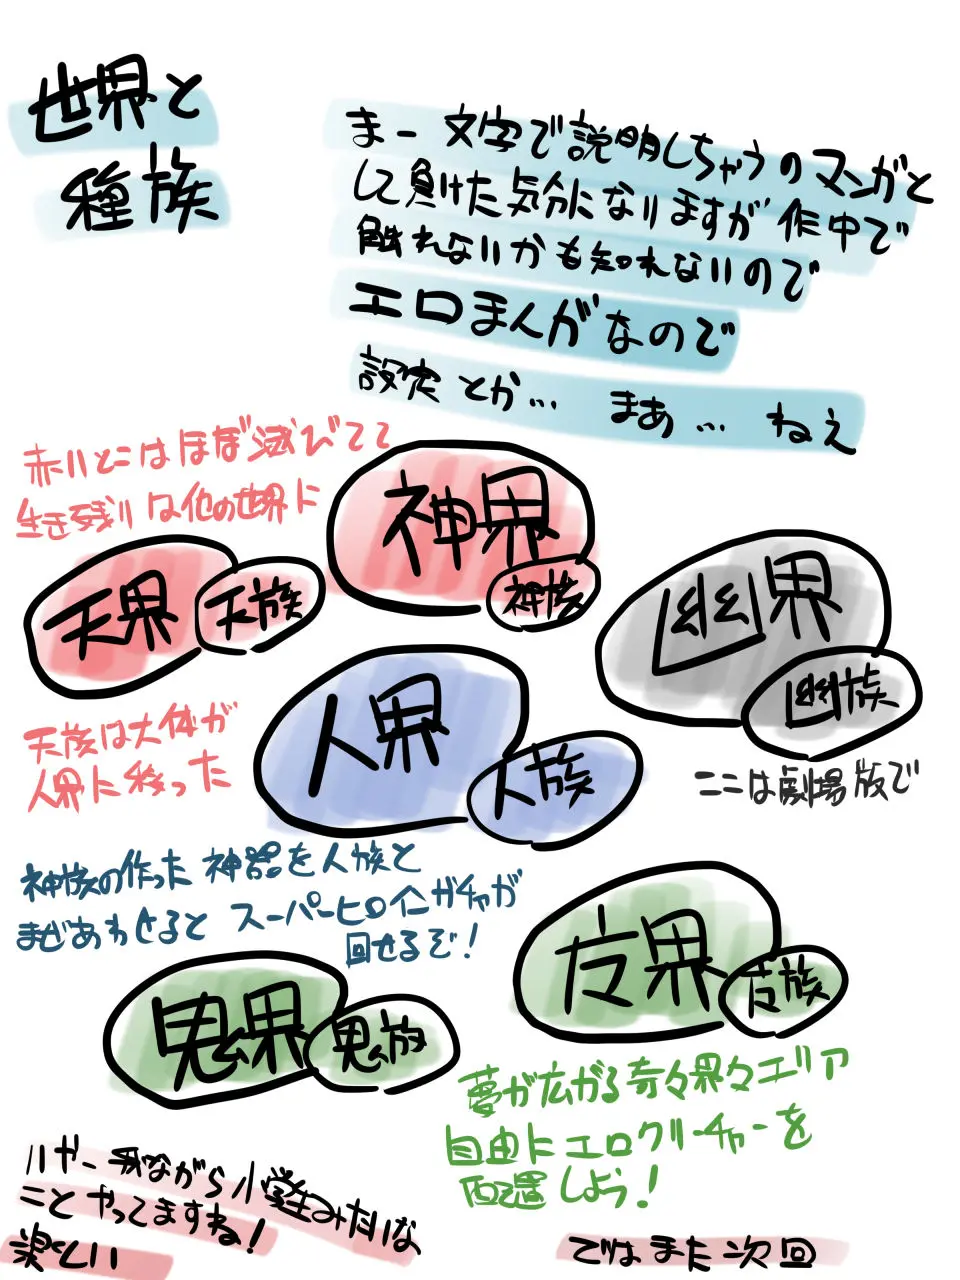 世界と
種族
まー文字で説明しちゃうのマンガと
して負けた気分になりますが作中で
触れないかも知れないので
エロまんがなので
設定とか… まあ… ねえ
赤いとこはほぼ滅びてて
生き残りは他の世界に
神界
神族
天界
天族
幽界
幽族
人界
人族
天族は大体が
人界に移った
ここは劇場版で
神族の作った神器を人族と
まぜあわせるとスーパーヒロインガチャが
回せるぞ!
皮界
皮族
鬼界
鬼族
夢が広がる奇々界々エリア
自由にエロクリーチャーを
配置しよう!
いやー我ながら小学生みたいな
ことやってますね!
楽しい
ではまた次回